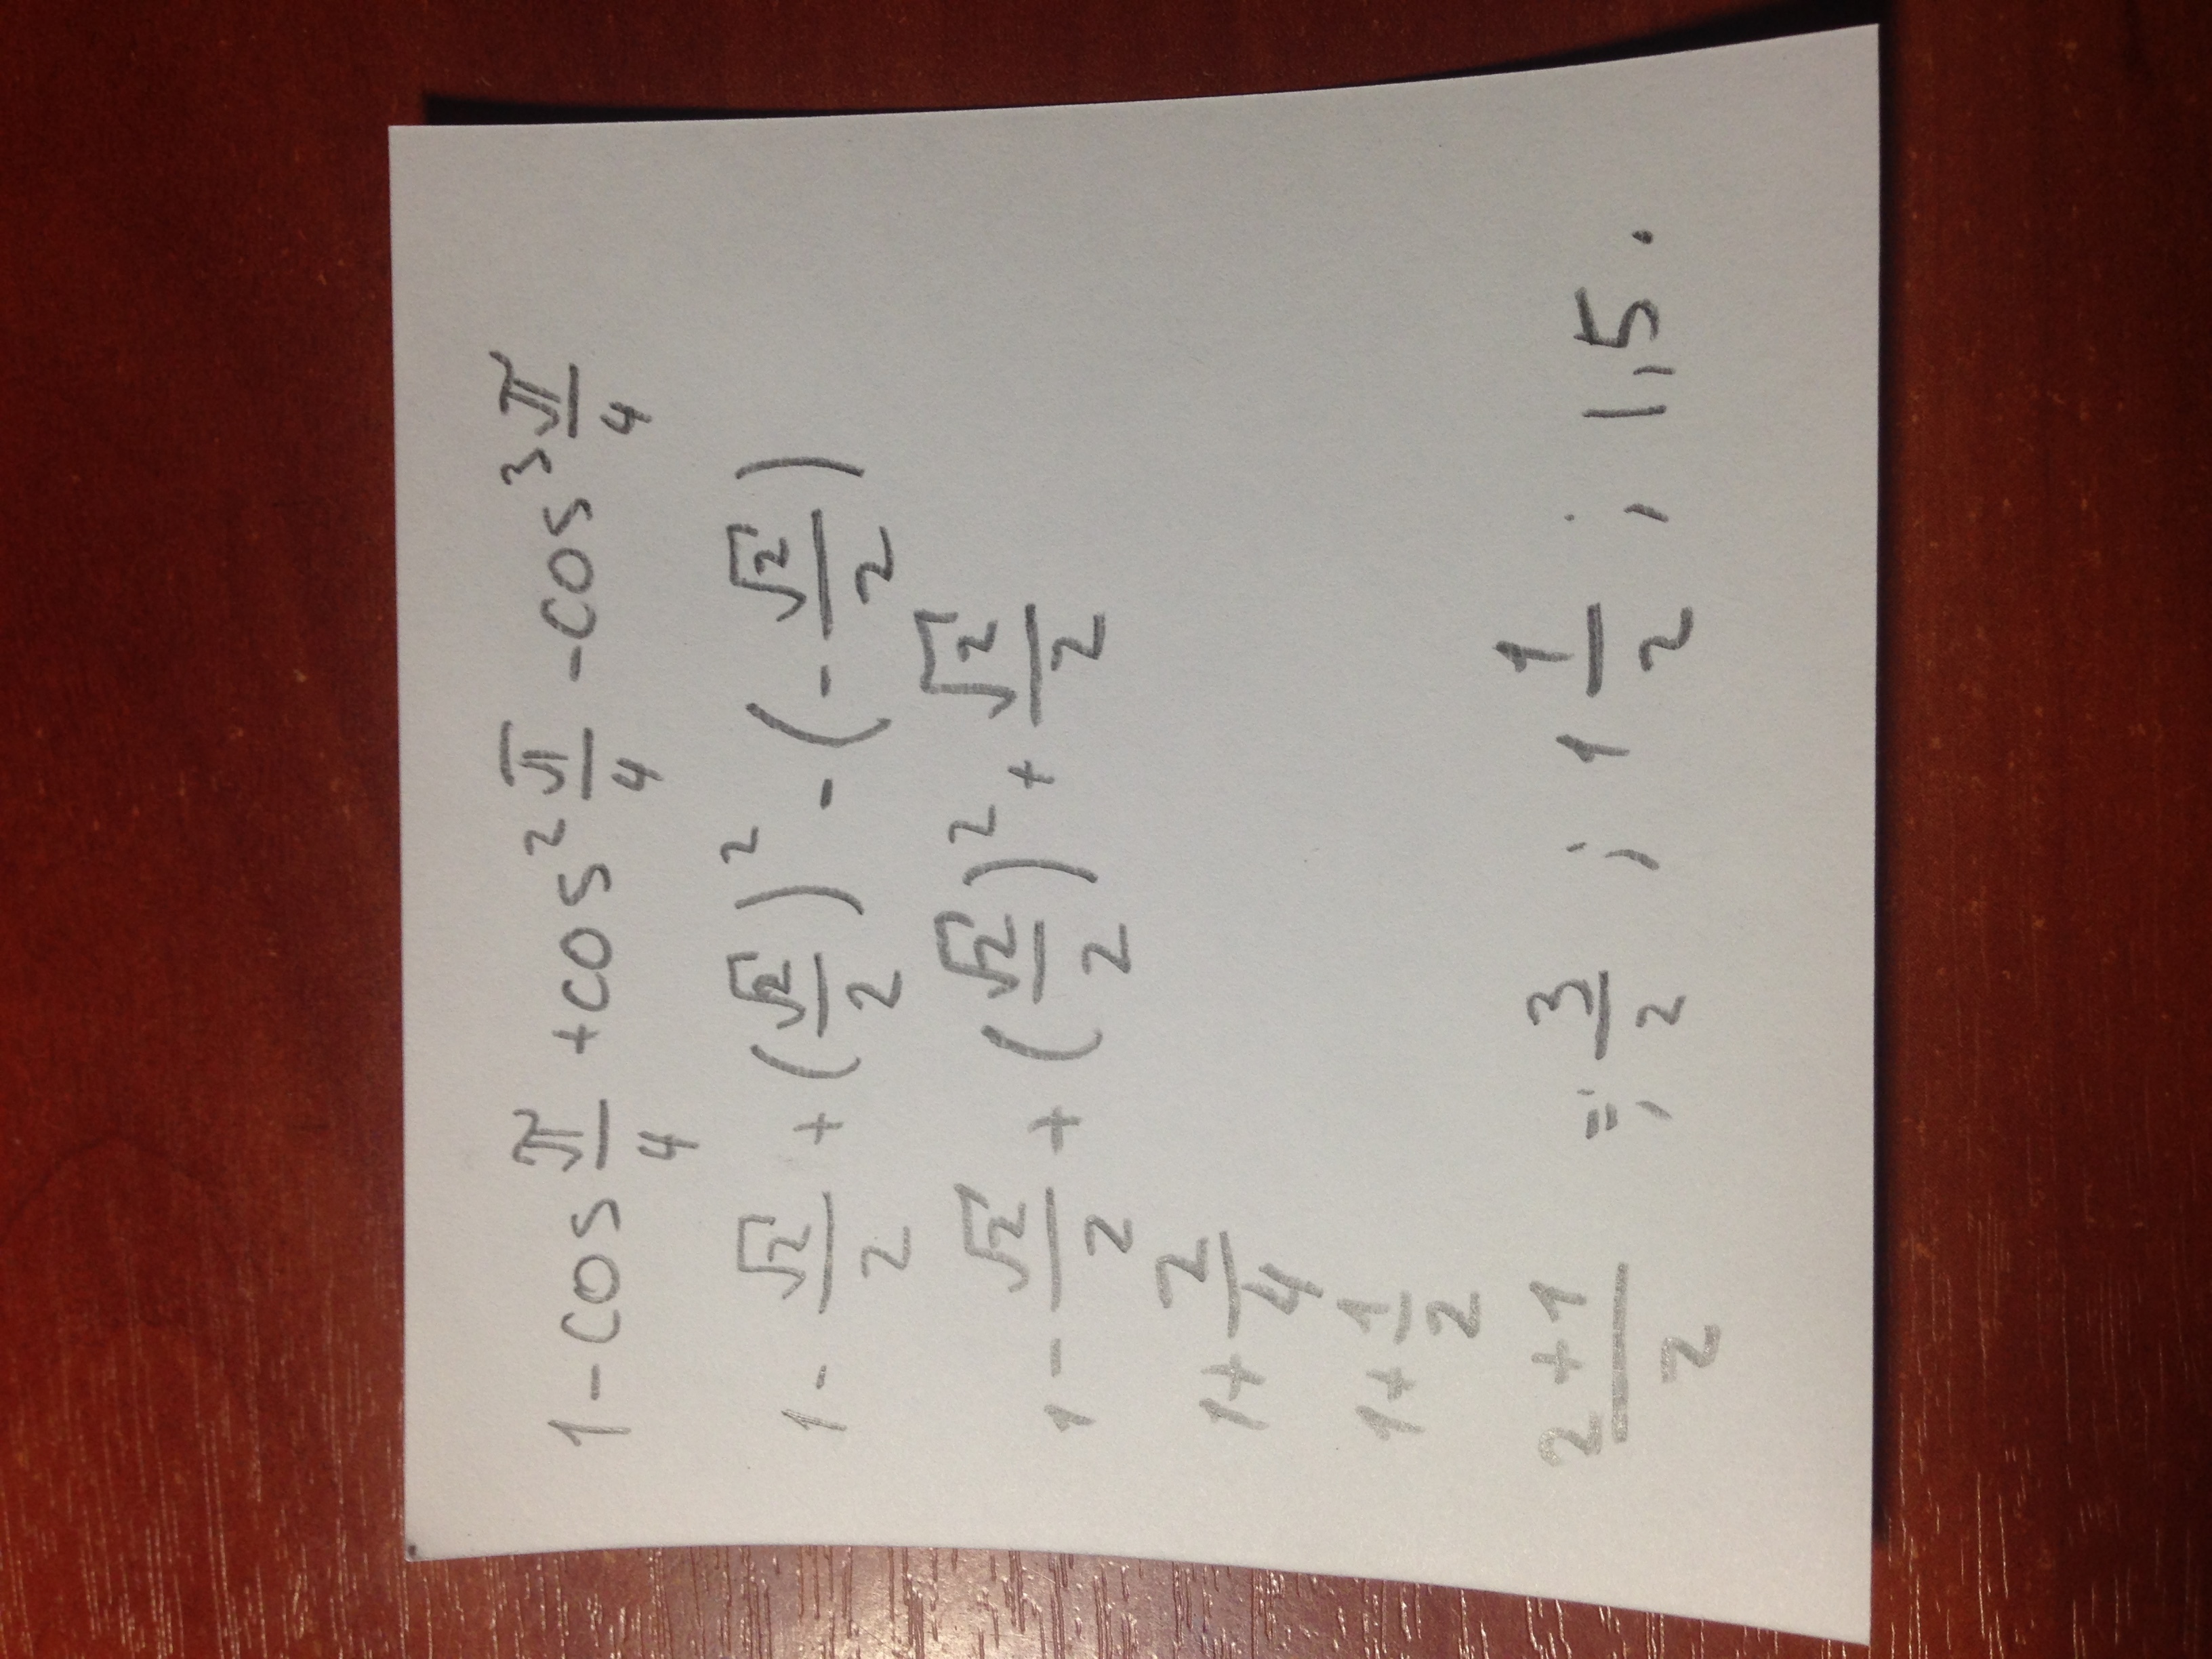 1 - cos π/4 + cos² π/4 - cos³ π/4
1 - √2/2 + (√2/2)² - (-√2/2)
1 - √2/2 + (√2/2)² + √2/2
1 + 2/4
1 + 1/2
2+1/2 = ; 3/2 ; 1 1/2 ; 1,5.